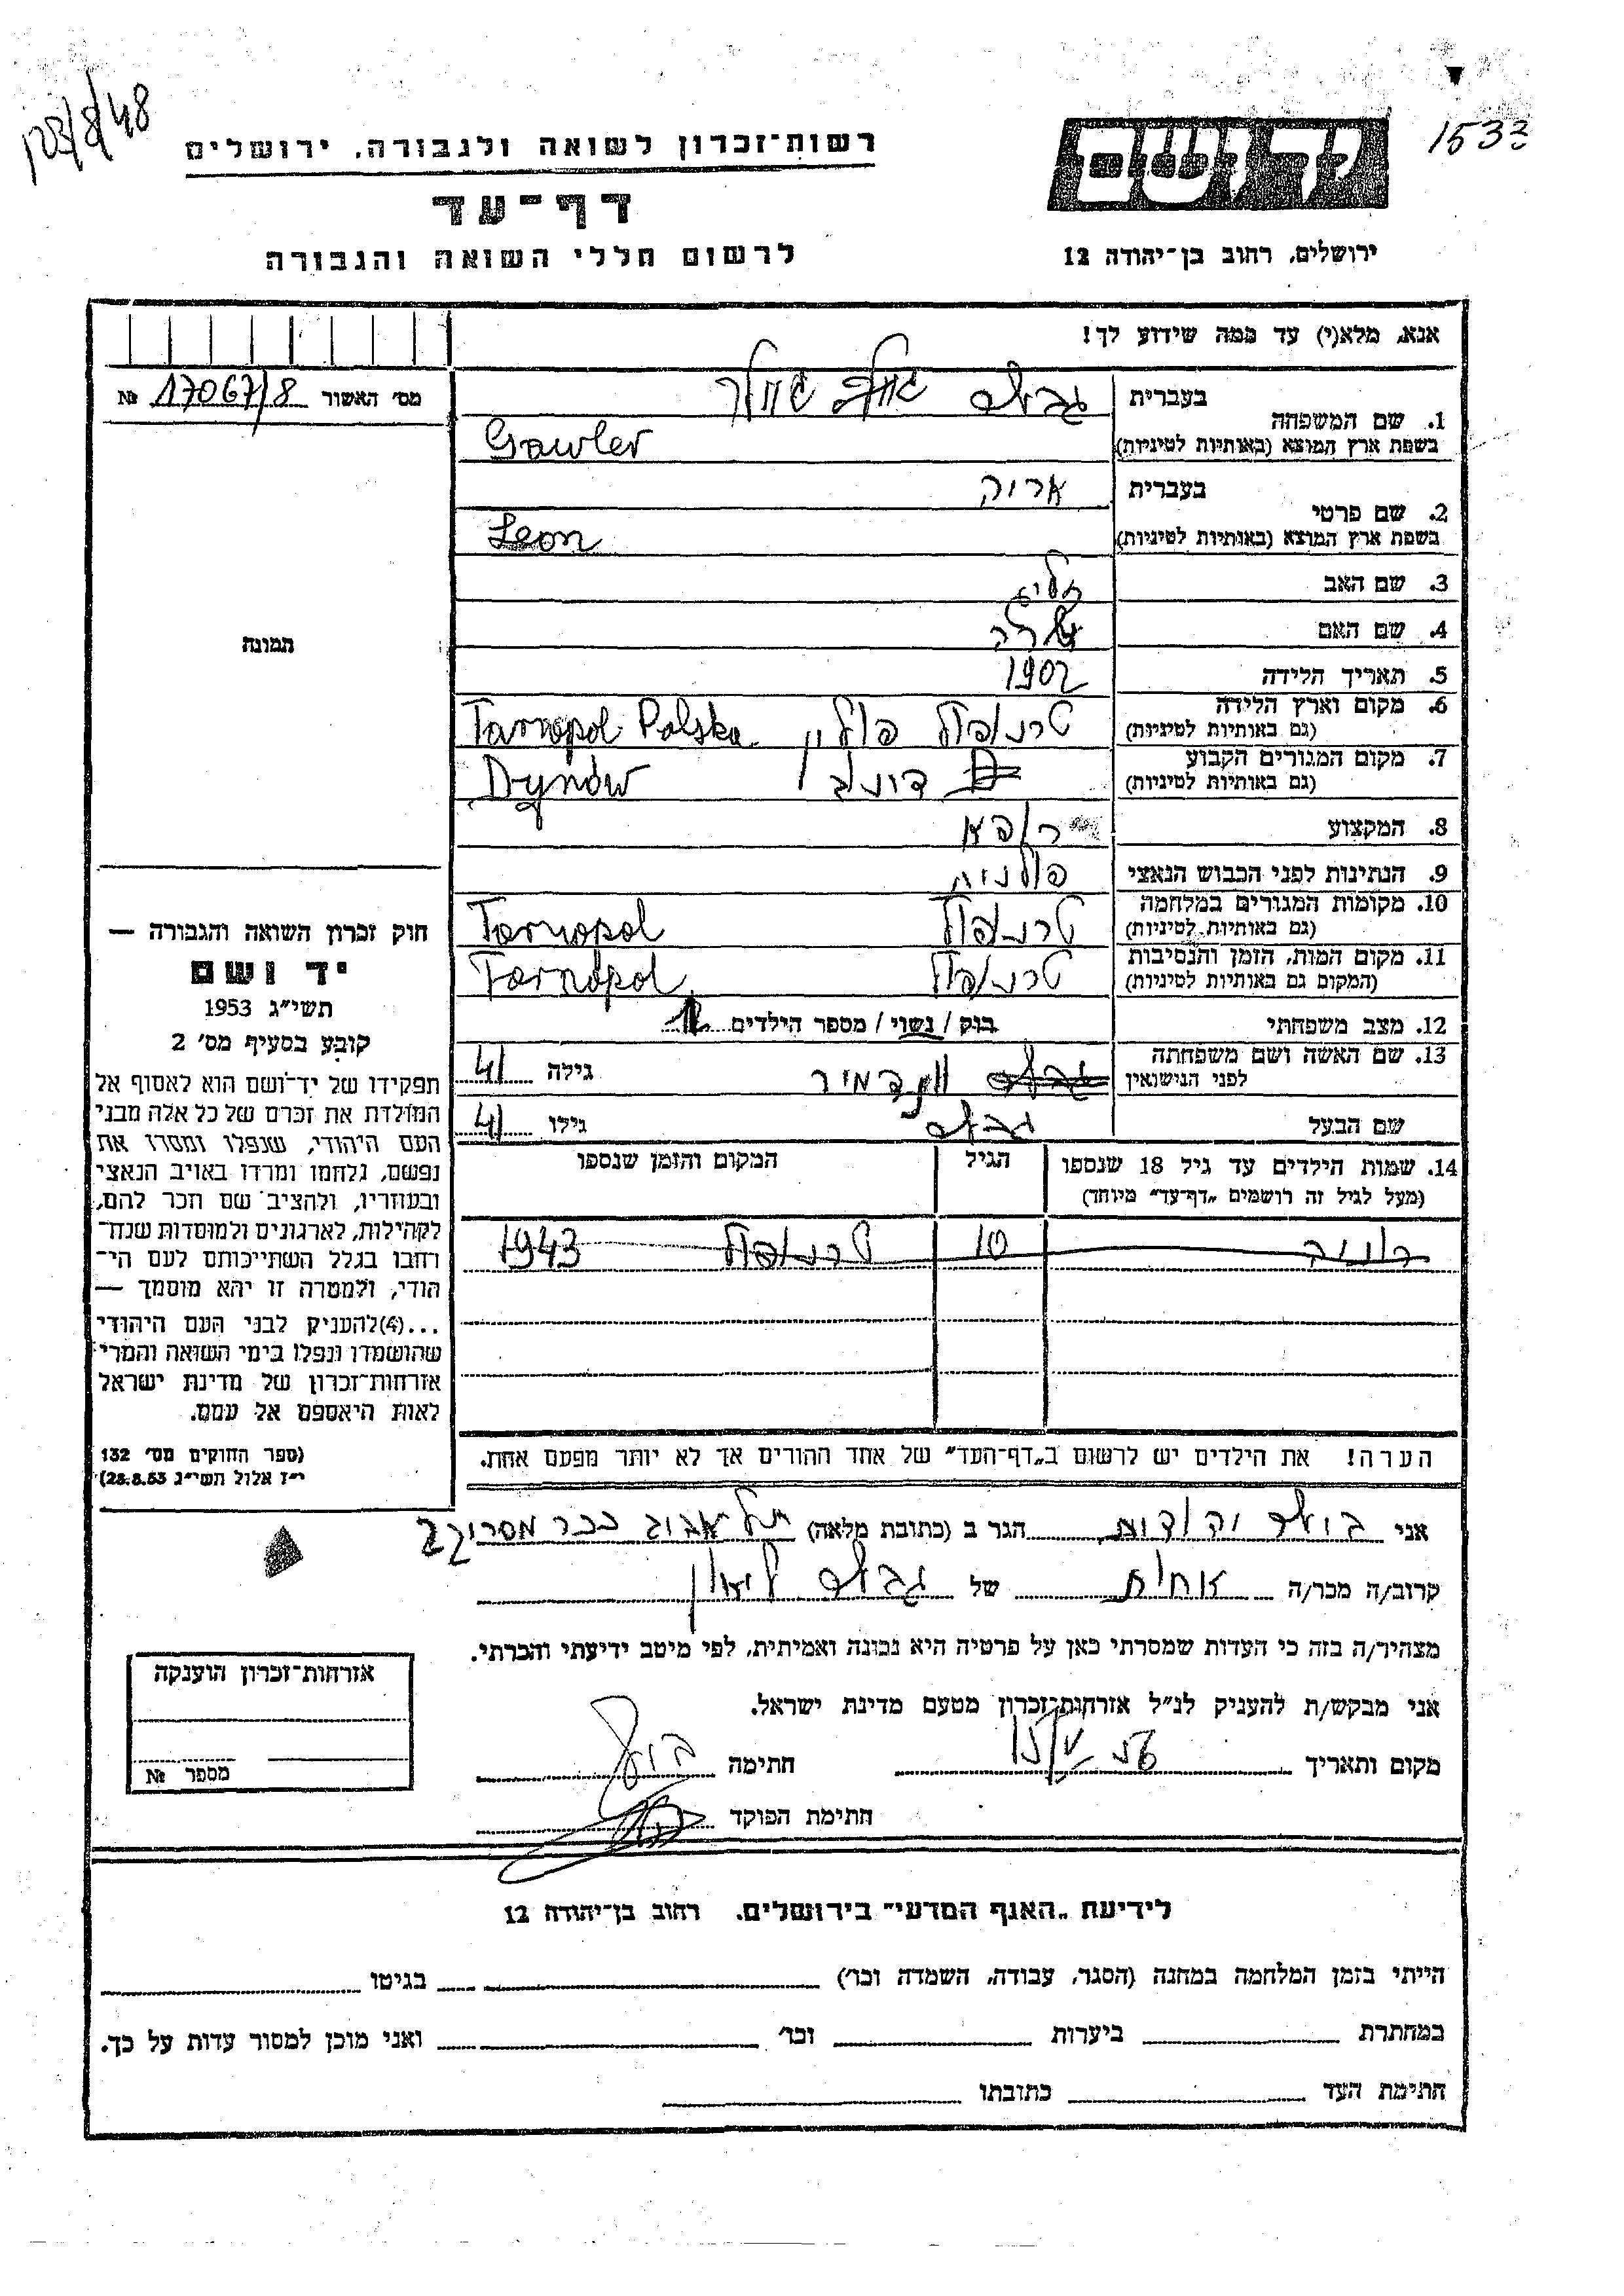 103/8/48
1533
יד ושם
רשות־זכרון לשואה ולגבורה. ירושלים
דף־עד
לרשום חללי השואה והגבורה
ירושלים. רחוב בן־יהודה 12
אנא, מלא(י) עד כמה שידוע לך!
מס׳ האשור 17067/8 №
1. שם המשפחה
בעברית
בשפת ארץ המוצא (באותיות לטיניות) Gawler
2. שם פרטי
בעברית אריה
בשפת ארץ המוצא (באותיות לטיניות) Leon
3. שם האב
4. שם האם שרה
5. תאריך הלידה 1902
6. מקום וארץ הלידה טרנופול פולין Tarnopol Polska
(גם באותיות לטיניות)
7. מקום המגורים הקבוע דינוב Dynów
(גם באותיות לטיניות)
8. המקצוע רופא
9. הנתינות לפני הכבוש הנאצי פולנית
10. מקומות המגורים במלחמה טרנופול Tarnopol
(גם באותיות לטיניות)
11. מקום המות, הזמן והנסיבות טרנופול Tarnopol
(המקום גם באותיות לטיניות)
12. מצב משפחתי רוק / נשוי / מספר הילדים
13. שם האשה ושם משפחתה
לפני הנישואין גילה 41
שם הבעל גילו 41
14. שמות הילדים עד גיל 18 שנספו הגיל המקום והזמן שנספו
(מעל לגיל זה רושמים „דף־עד״ מיוחד)
10 טרנופול 1943
הערה! את הילדים יש לרשום ב„דף־העד״ של אחד ההורים אך לא יותר מפעם אחת.
תמונה
חוק זכרון השואה והגבורה —
יד ושם
תשי״ג 1953
קובע בסעיף מס׳ 2
תפקידו של יד־ושם הוא לאסוף אל
המולדת את זכרם של כל אלה מבני
העם היהודי, שנפלו ומסרו את
נפשם, נלחמו ומרדו באויב הנאצי
ובעוזריו, ולהציב שם וזכר להם,
לקהילות, לארגונים ולמוסדות שנח־
רבו בגלל השתייכותם לעם הי־
הודי, ולמטרה זו יהא מוסמך —
...(4) להעניק לבני העם היהודי
שהושמדו ונפלו בימי השואה והמרי
אזרחות־זכרון של מדינת ישראל
לאות היאספם אל עמם.
(ספר החוקים מס׳ 132
י״ז אלול תשי״ג 28.8.53)
אני יהודית הגר ב (כתובת מלאה) תל אביב ככר מסריק 2
קרוב/ה מכר/ה אחות של
מצהיר/ה בזה כי העדות שמסרתי כאן על פרטיה היא נכונה ואמיתית, לפי מיטב ידיעתי והכרתי.
אני מבקש/ת להעניק לנ״ל אזרחות־זכרון מטעם מדינת ישראל.
מקום ותאריך חתימה
חתימת הפוקד
אזרחות־זכרון הוענקה
מספר №
לידיעת „האגף המדעי״ בירושלים. רחוב בן־יהודה 12
הייתי בזמן המלחמה במחנה (הסגר, עבודה, השמדה וכו׳) בגיטו
במחתרת ביערות וכו׳ ואני מוכן למסור עדות על כך.
חתימת העד כתובתו